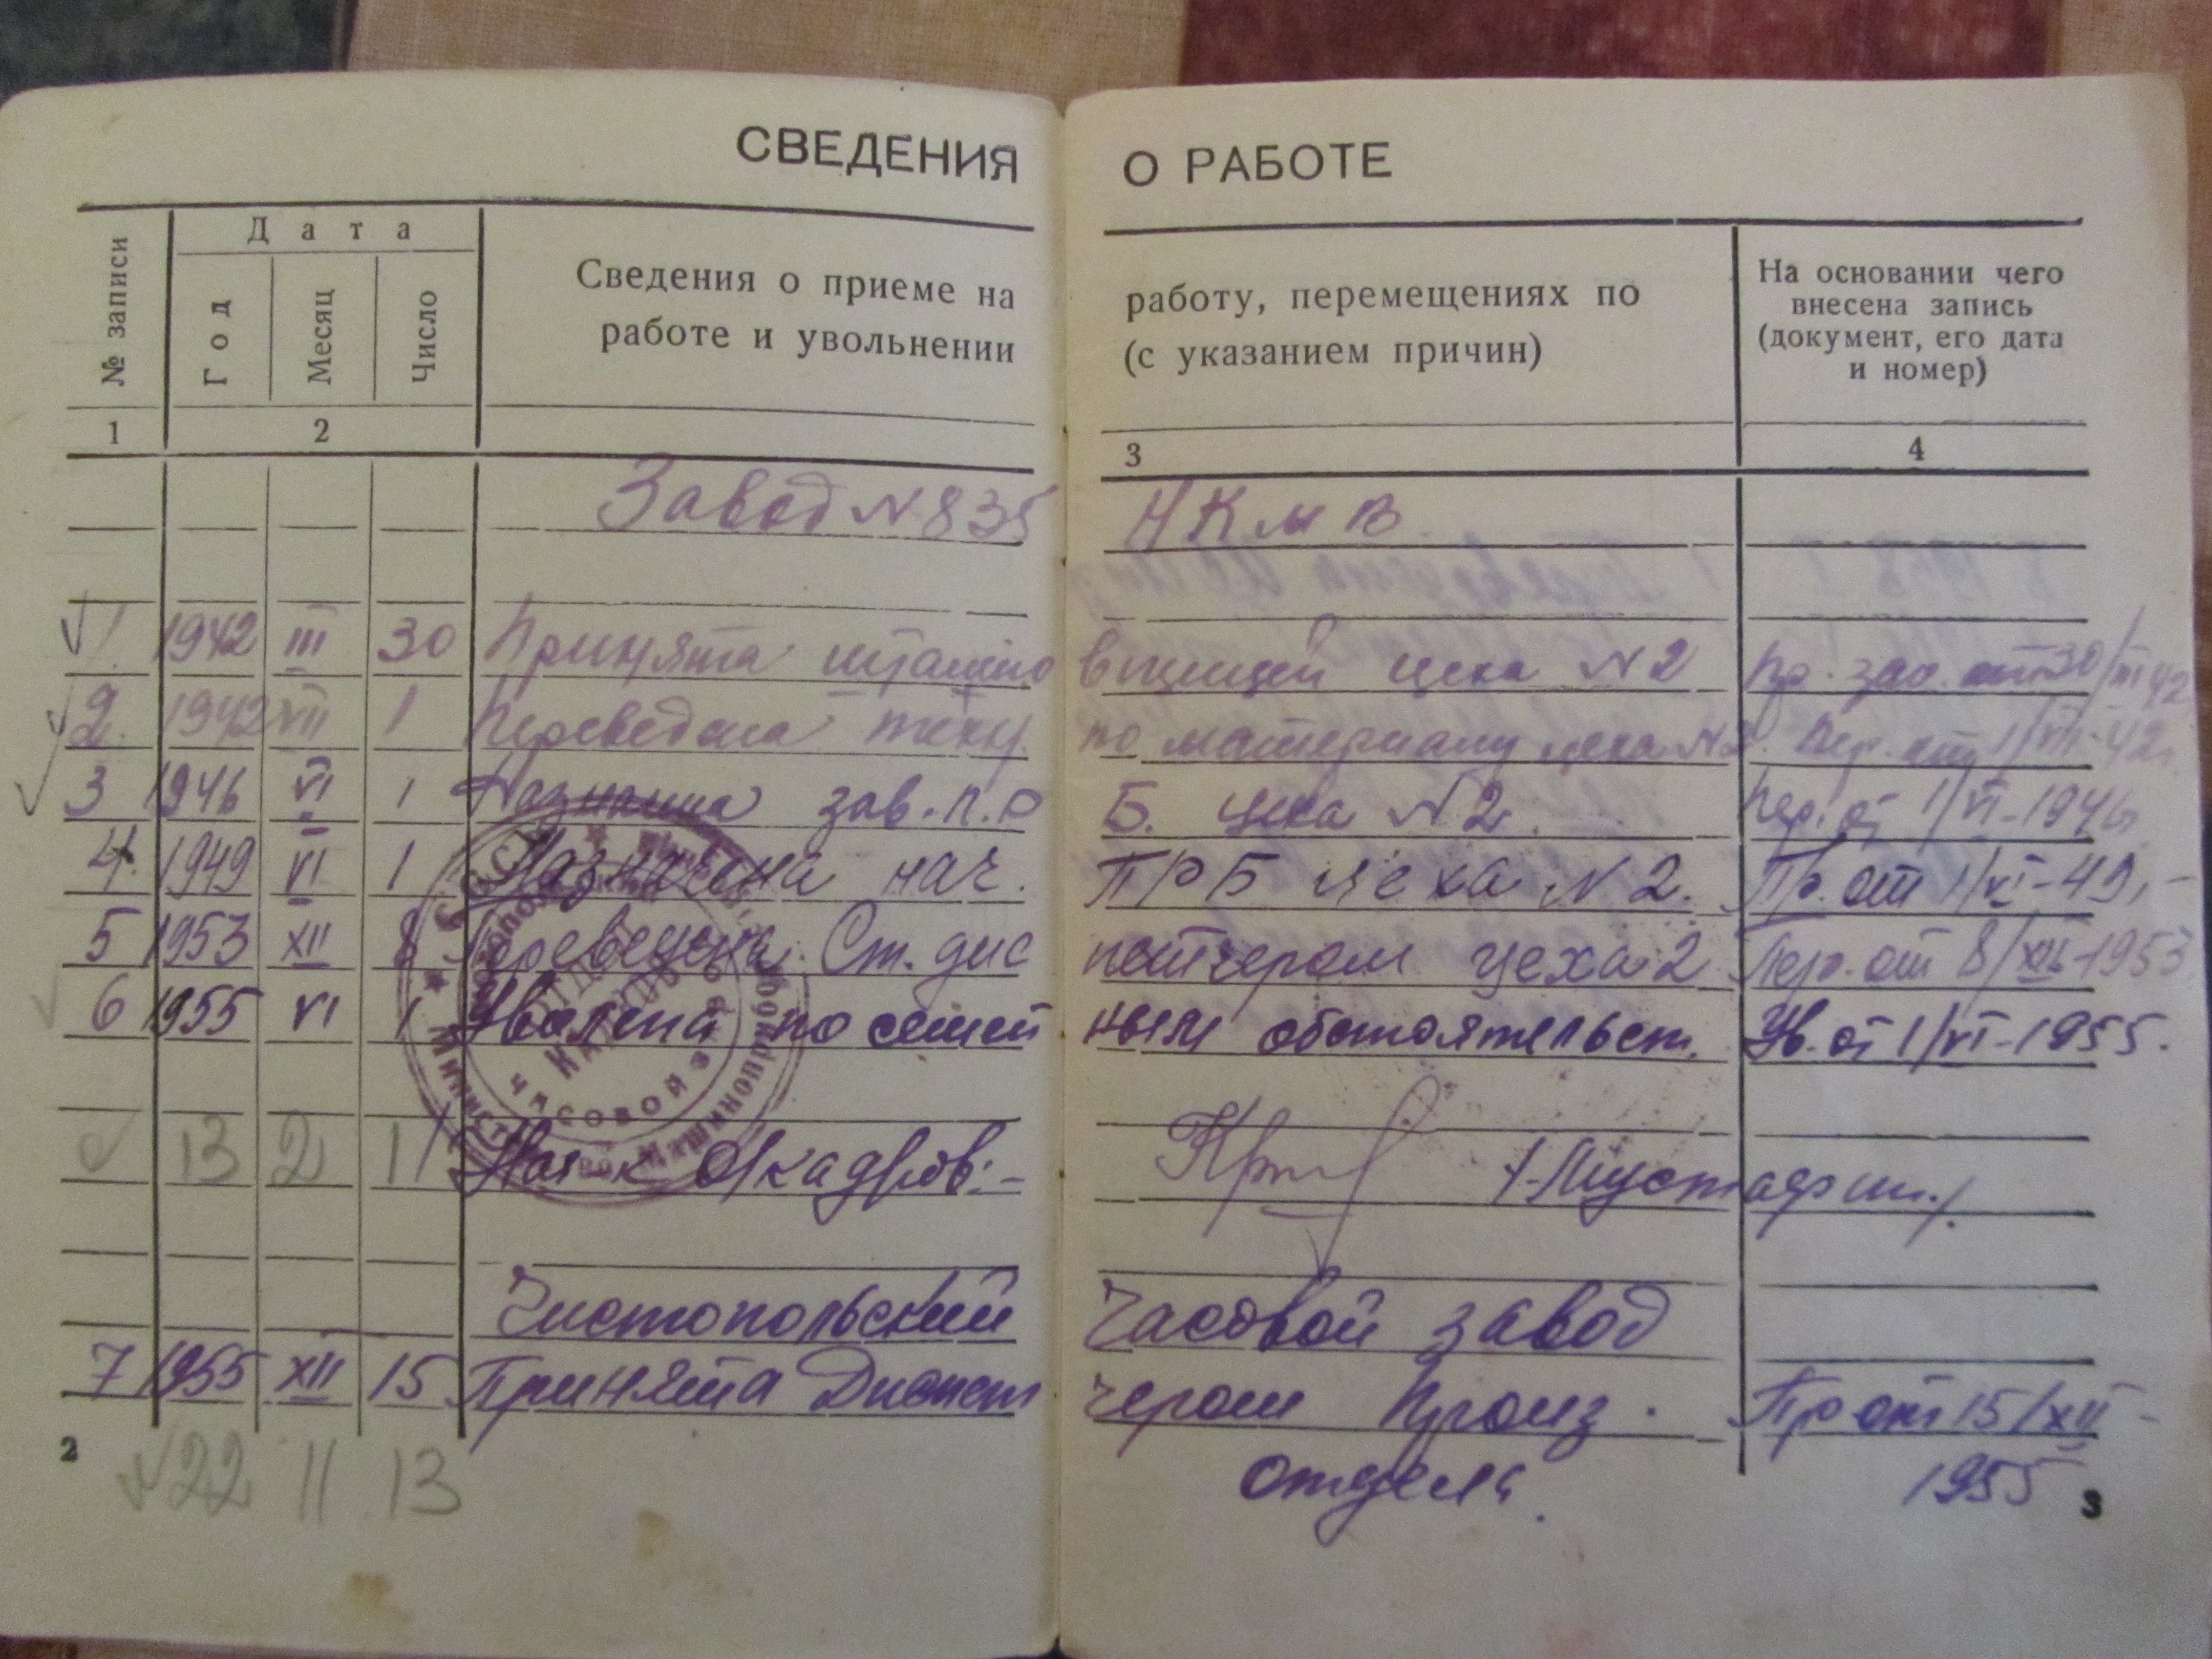 СВЕДЕНИЯ О РАБОТЕ
№ записи
Дата
Год Месяц Число
Сведения о приеме на работу, перемещениях по
работе и увольнении (с указанием причин)
На основании чего
внесена запись
(документ, его дата
и номер)
1 2 3 4
Завод N 835 НКМВ
1. 1942 III 30 Принята штампо вщицей цеха N 2 Пр. зав. от 30/III 42
2. 1942 VII 1 Переведена техн. по материалу цеха N 2. Пер. от 1/VII-42г.
3 1946 VI 1 Назначена зав. П.Р. Б. цеха N 2. Пер. от 1/VI-1946
4. 1949 VI 1 Назначена нач. ПРБ цеха N 2. Пр. от 1/VI-49,-
5 1953 XII 8 Переведена Ст. дис петчером цеха 2 Пер. от 8/XII-1953
6 1955 VI 1 Уволена по семей ным обстоятельст. Ув. от 1/VI-1955.
ЧАСОВОЙ
13 2 11 Нач-к О/кадров:- /-Мустафин./
Чистопольский Часовой завод
7 1955 XII 15 Принята Диспет чером Произ. Пр от 15/XII-
отдела. 1955
2 22 11 13 3